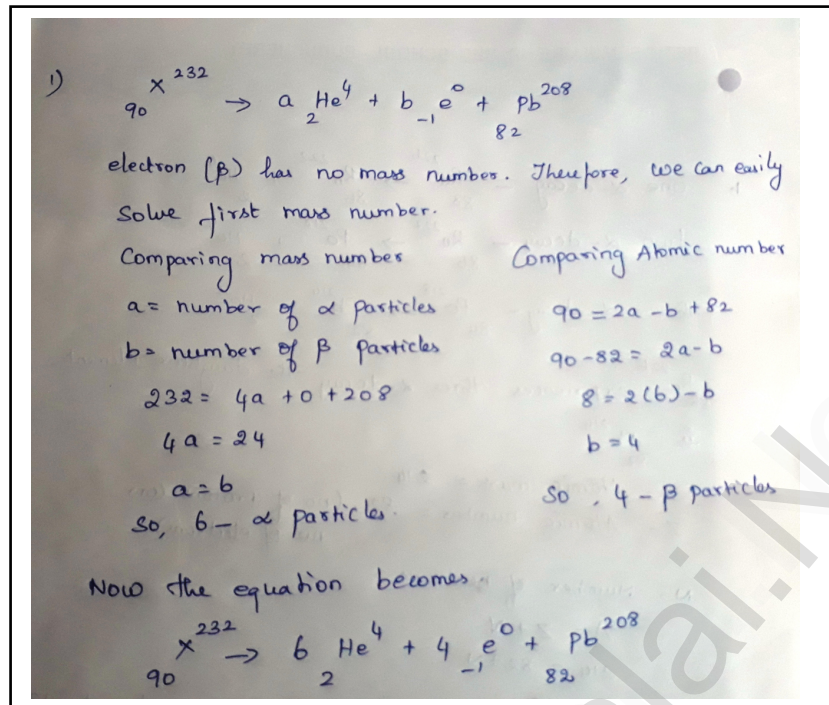 1) ₉₀X²³² → a ₂He⁴ + b ₋₁e⁰ + ₈₂Pb²⁰⁸
electron (β) has no mass number. Therefore, we can easily
Solve first mass number.
Comparing mass number
a = number of α particles
b = number of β particles
232 = 4a + 0 + 208
4a = 24
a = 6
So, 6 – α particles.
Comparing Atomic number
90 = 2a - b + 82
90 - 82 = 2a - b
8 = 2(6) - b
b = 4
So, 4 - β particles
Now the equation becomes.
₉₀X²³² → 6 ₂He⁴ + 4 ₋₁e⁰ + ₈₂Pb²⁰⁸